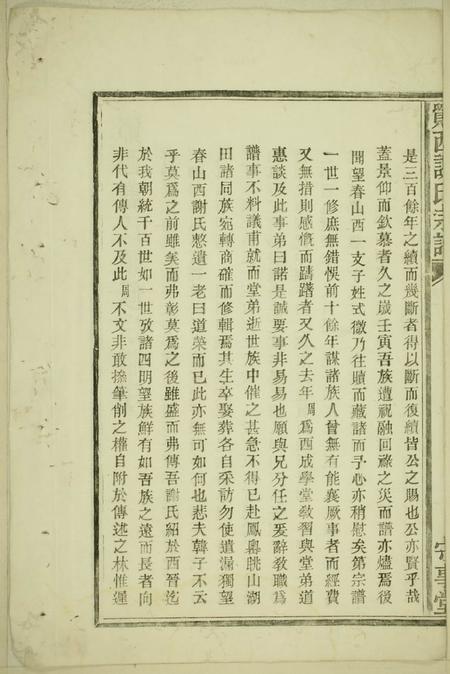 是三百餘年之續而幾斷者得以斷而復續皆公之賜也公亦賢乎哉
蓋景仰而欽慕者久之歲壬寅吾族遭祝融回祿之災而譜亦燼焉後
聞望春山西一支子姓式微乃往贖而藏諸而予心亦稍慰矣第宗譜
一世一修庶無錯悞前十餘年謀諸族人曾無有能襄厥事者而經費
又無措則感慨而躊躇者又久之去年周爲西成學堂敎習與堂弟道
惠談及此事弟曰諾是誠要事非易易也願與兄分任之爰辭敎職爲
譜事不料議甫就而堂弟逝世族中催之甚急不得已赴鳳嶴眺山湖
田諸同族宛轉商確而修輯焉其生卒娶葬各自采訪勿使遺漏獨望
春山西謝氏憗遺一老曰道榮而已此亦無可如何也悲夫韓子不云
乎莫爲之前雖美而弗彰莫爲之後雖盛而弗傳吾謝氏紹於西晉迄
於我朝統千百世如一世攷諸四明望族鮮有如吾族之遠而長者向
非代有傳人不及此周不文非敢擅筆削之權自附於傳述之林惟遲